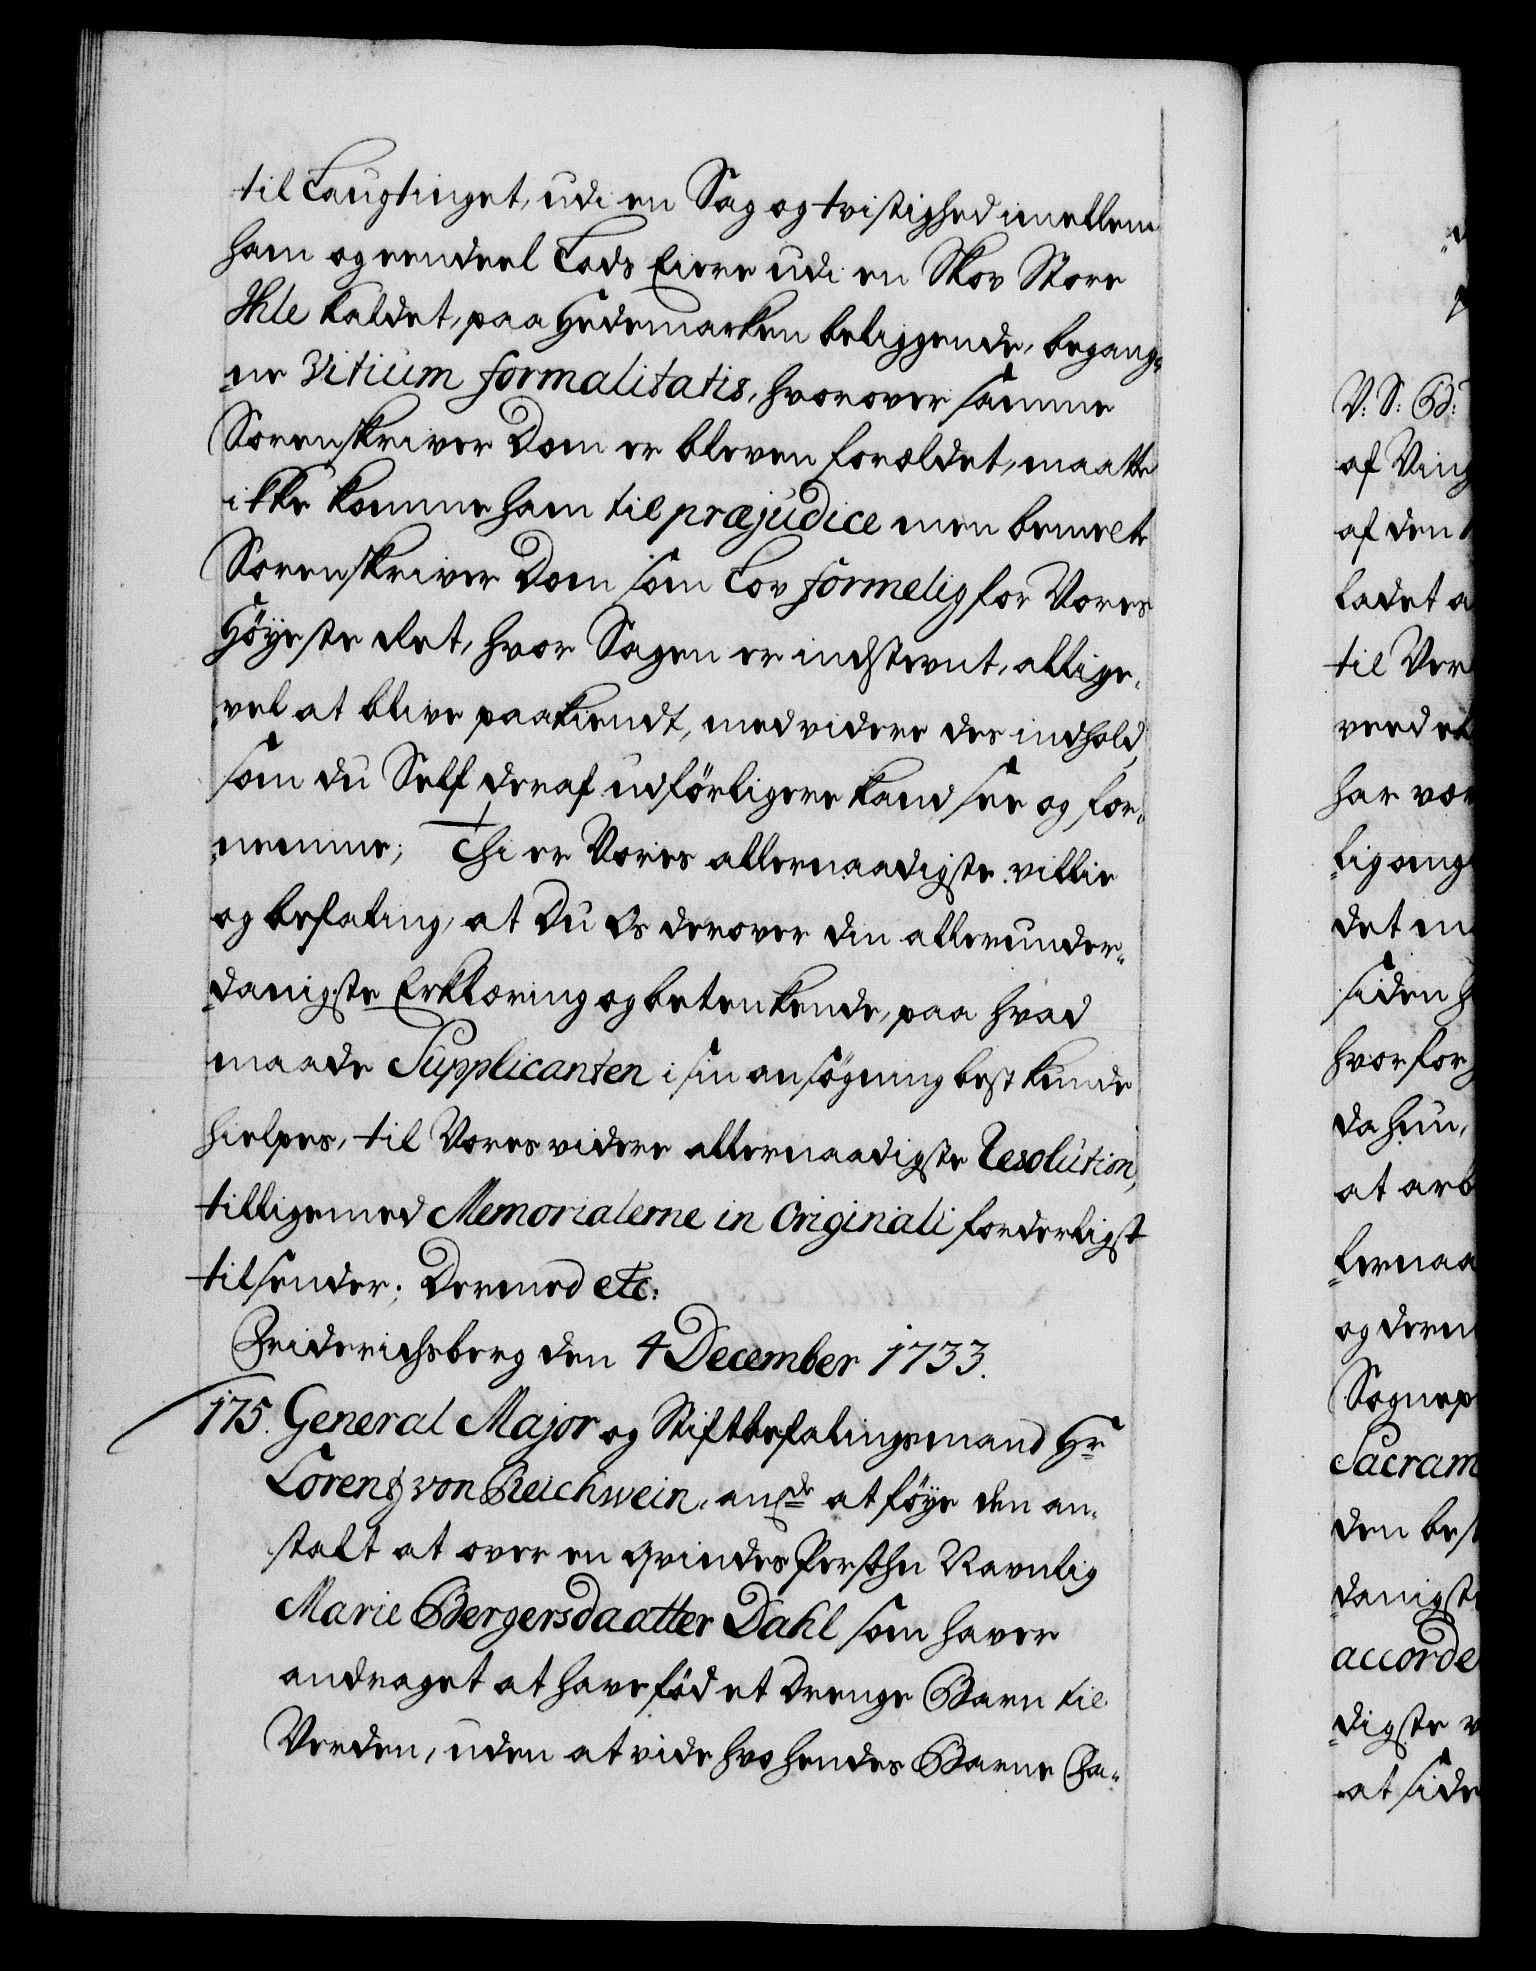 til Laugtinget, udi en Sag og tvistighed imellem
ham og eendeel Lods Eiere udi en Skov Store
Hle kaldet, paa Hedemarken beliggende, begang-
ne Vitium formalitatis, hvorover samme
Sorenskriver Dom er bleven forældet, maatte
ikke komme ham til præjudice men bemelte
Sorenskriver Dom som Lov formelig for Vores
Höyeste Ret, hvor Sagen er indstevnt, allige-
vel at blive paakiendt, med videre des indhold,
som du Self deraf udförligere kand see og for-
nemme; Thi er Vores allernaadigste villie
og befaling, at Du Os derover din allerunder-
danigste Erklæring og betenkende, paa hvad
maade Supplicanten i sin ansögning best kunde
hielpes, til Vores videre allernaadigste Resolution,
tilligemed Memorialerne in Originali forderligst
tilsender; Dermed etc:
Friderichsberg den 4 December 1733.
175. General Major og Stiftbefalingsmand Hr
Lorentz von Reichwein, anlde at föye den an-
stalt at over en qvindes Persohn Navnlig
Marie Bergersdaatter Dahl som haver
andraget at have föd et Drenge Barn til
Verden, uden at vide hvo hendes Barne Fa-
V: S: G:
af Ving
af den
ladet a
til Ver
veed
har vær
lig omg
det
siden h
hvorfor
da hun,
at arb
lernaa
og derm
Sognep
Sacram
den best
danigst
accorde
digste v
at side